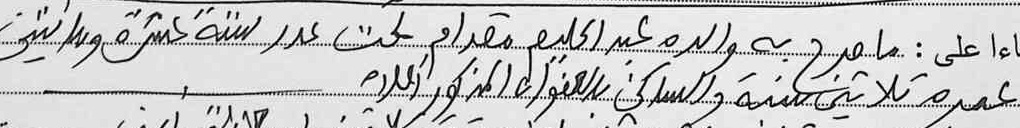 اءا على : ما صرح به والده عبد الحليم مقدام تحت عدد ستة عشرة ومائتين
عمره ثلاثين سنة والساكن بالعنوان المذكور أعلاه